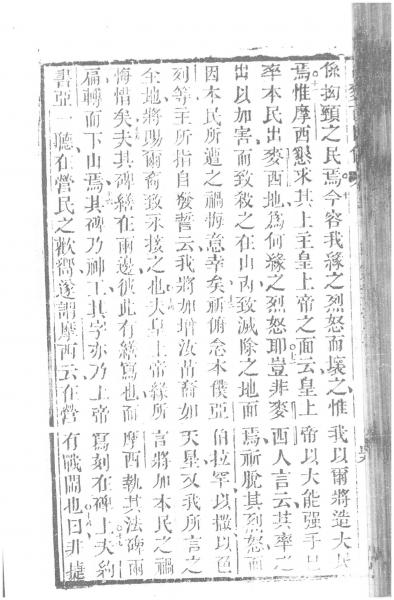 係拗頸之民焉今容我緣之烈怒而壞之惟我以爾將造大民
焉惟摩西懇求其上主皇上帝之面云皇上帝以大能强手
率本民出麥西地為何緣之烈怒耶豈非麥西人言云其率之
出以加害而致殺之在山內致滅除之地面焉祈脫其烈怒而
因本民所遭之禍悔意幸矣祈俯念本僕亞伯拉罕以撒以色
列等主所指自發誓云我將加增汝苗裔如天星又我所言之
全地將賜爾裔致永接之也夫皇上帝緣所言將加本民之禍
悔惜矣夫其碑繕在兩邊彼此有繕寫也而摩西執其法碑兩
扁轉而下山焉其碑乃神工其字亦乃上帝寫刻在碑上夫約
書亞一聽在營民之歡嚮遂謂摩西云在營有戰鬪也曰非捷